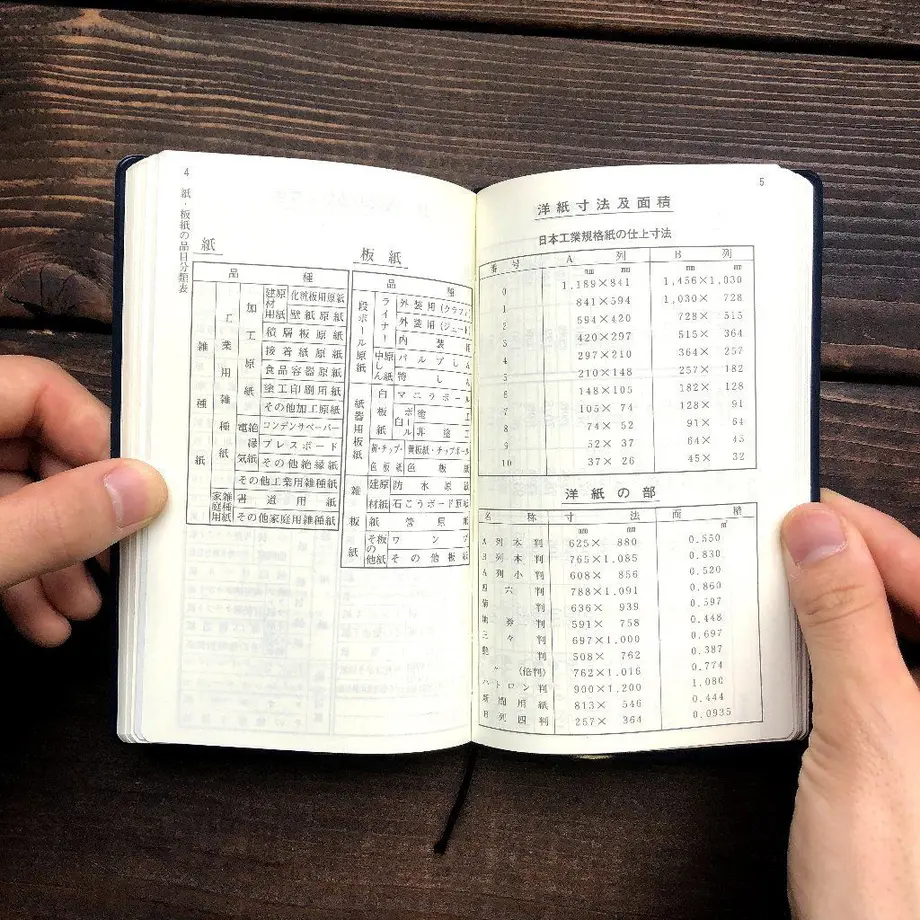 4
紙・板紙の品目分類表
紙
品 種
雑種紙
工業用雑種紙
加工原紙
建材用紙原 化粧板用原紙
壁紙原紙
積層板原紙
接着紙原紙
食品容器原紙
塗工印刷用紙
その他加工原紙
電気絶縁紙 コンデンサペーパー
プレスボード
その他絶縁紙
その他工業用雑種紙
家庭用雑種紙 書道用紙
その他家庭用雑種紙
板紙
品 種
段ボール原紙
ライナー 外装用(クラフト)
外装用(ジュート)
内装用
中しん原紙 パルプしん
特しん
紙器用板紙
白板紙 マニラボール
白ボール 塗工
非塗工
黄・チップ・色板紙 黄板紙・チップボール
色板紙
雑板紙
建材原紙 防水原紙
石こうボード原紙
紙管原紙
その他板紙 ワンプ
その他板紙
5
洋紙寸法及面積
日本工業規格紙の仕上寸法
番号 A列 B列
㎜ ㎜ ㎜ ㎜
0 1,189×841 1,456×1,030
1 841×594 1,030×728
2 594×420 728×515
3 420×297 515×364
4 297×210 364×257
5 210×148 257×182
6 148×105 182×128
7 105×74 128×91
8 74×52 91×64
9 52×37 64×45
10 37×26 45×32
洋紙の部
名称 寸法 面積
㎡
A列本判 625×880 0.550
B列本判 765×1.085 0.830
A列小判 608×856 0.520
四六判 788×1.091 0.860
菊判 636×939 0.597
地券判 591×758 0.448
三々判 697×1,000 0,697
艶判 508×762 0.387
〃(倍判) 762×1.016 0.774
ハトロン判 900×1,200 1,080
新聞用紙 813×546 0.444
B列四判 257×364 0.0935